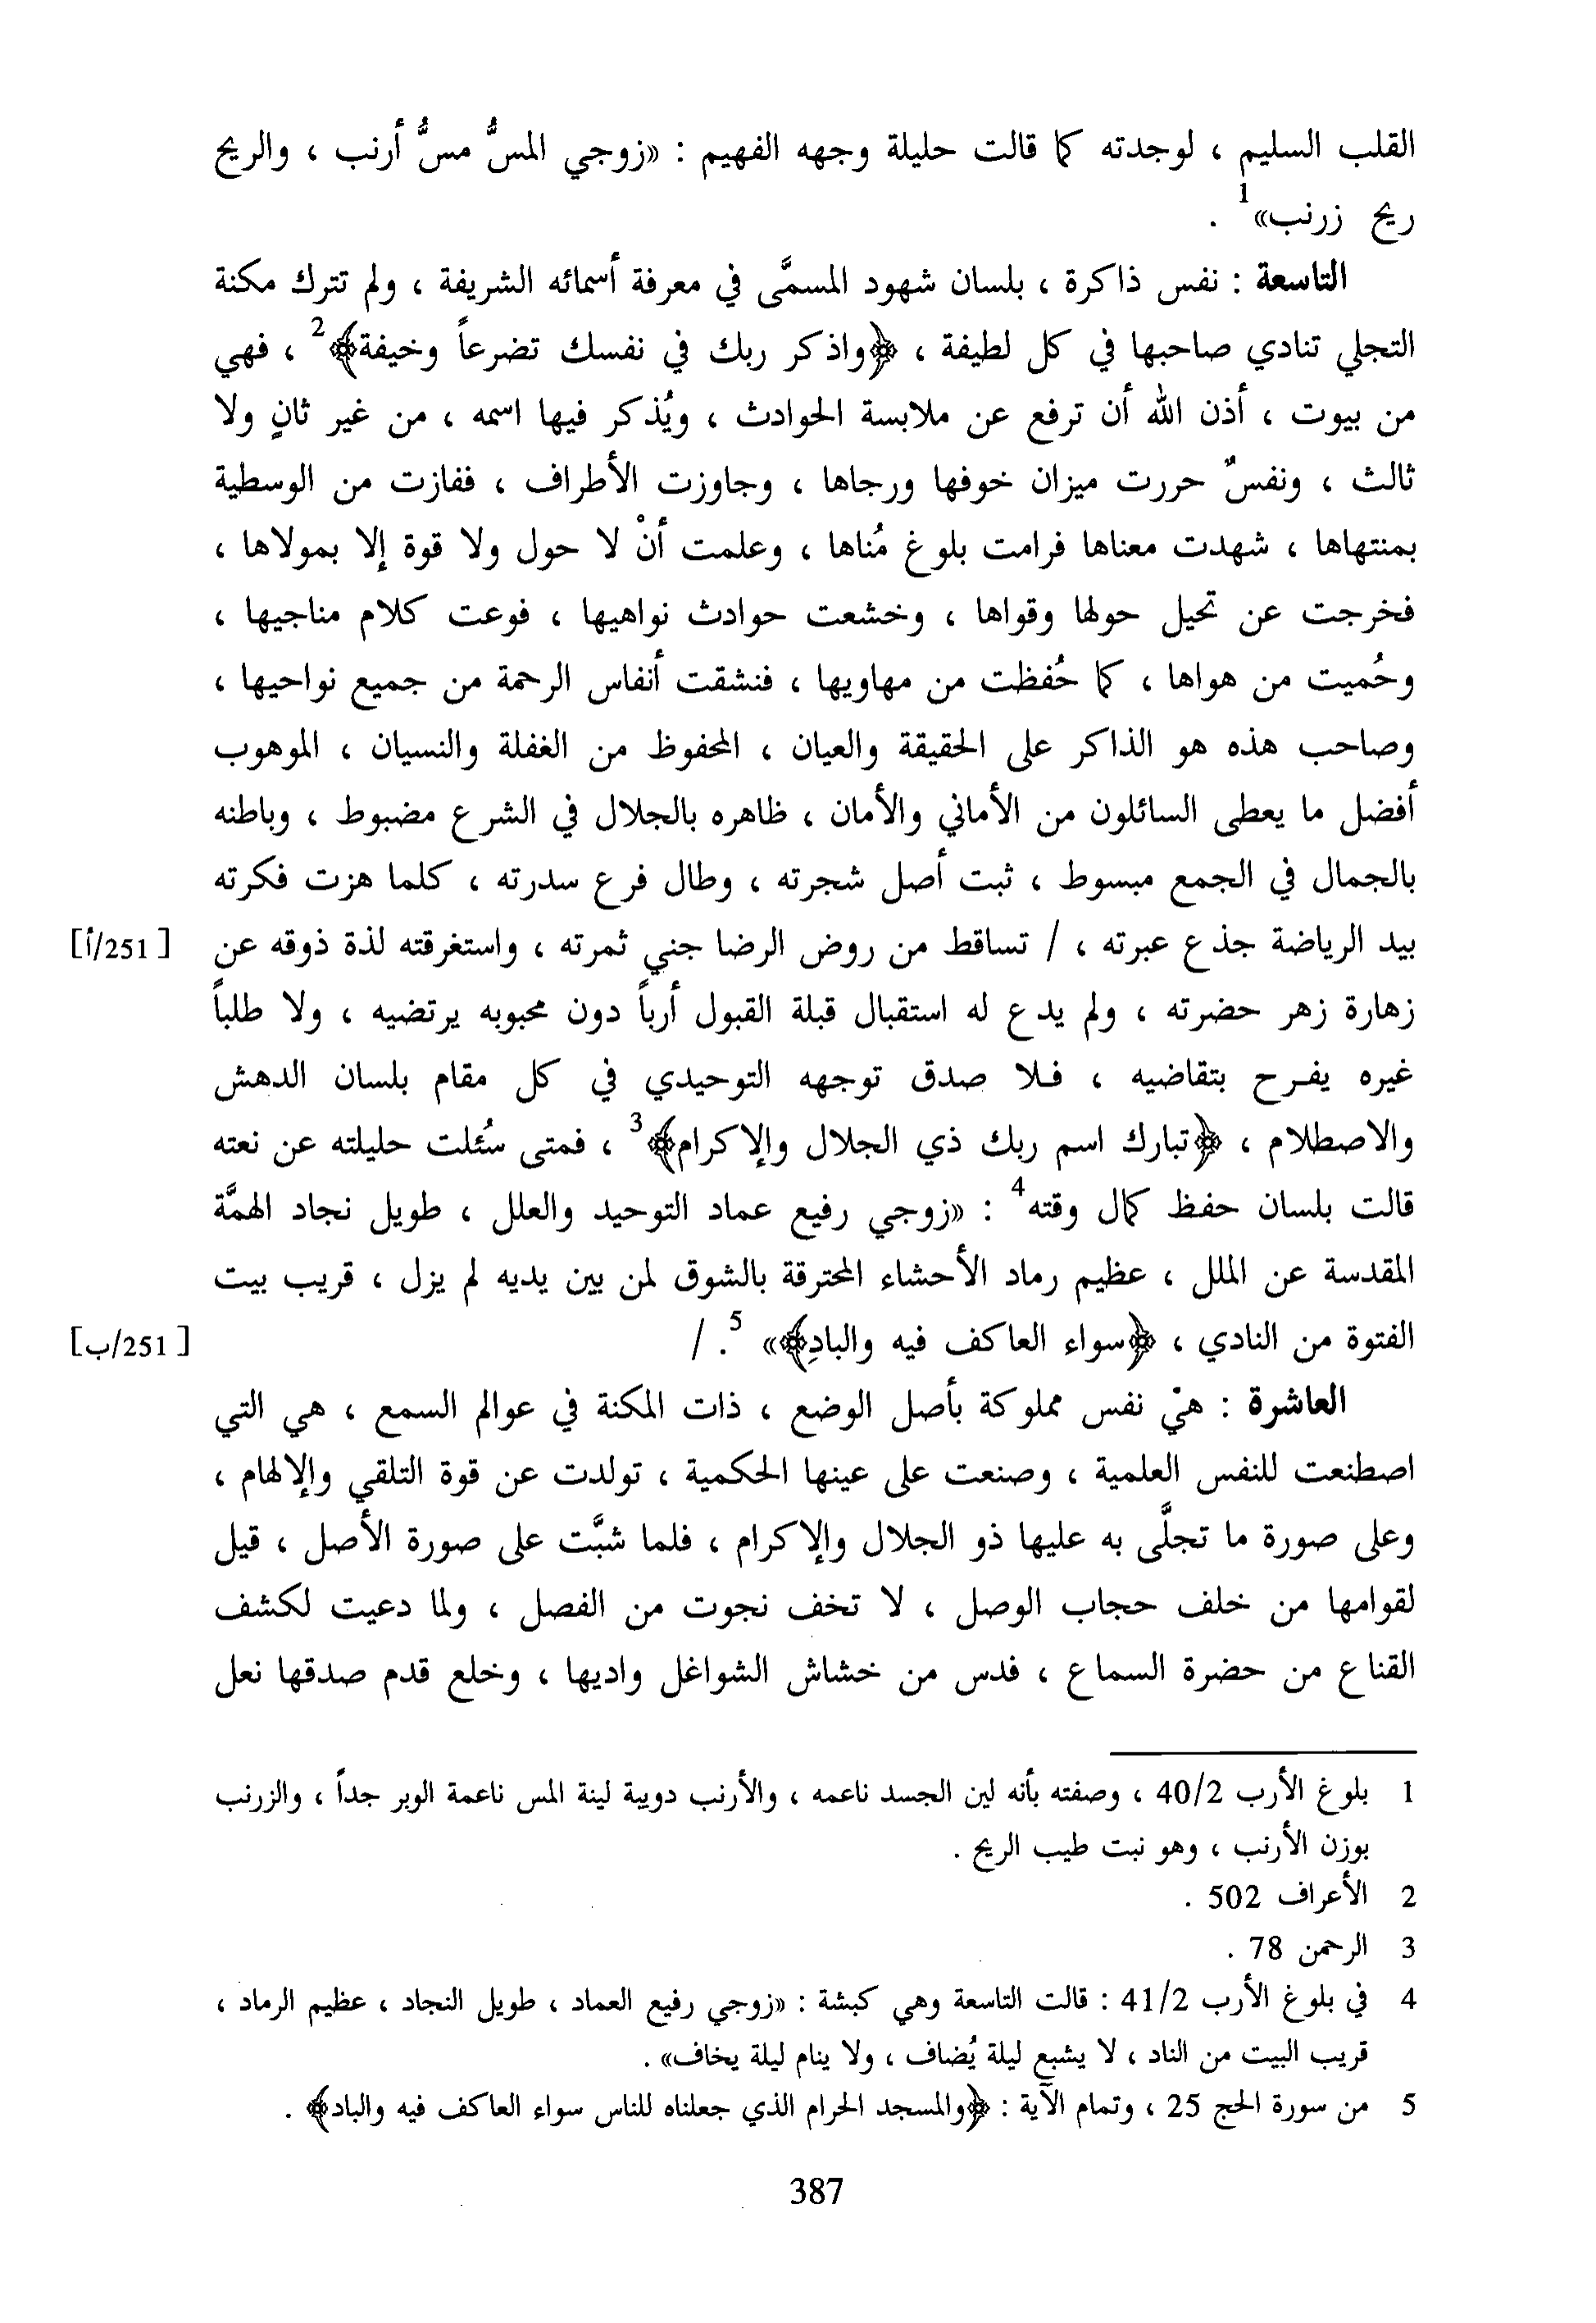 القلب السليم ، لوجدته كما قالت حليلة وجهه الفهيم : «زوجي المسُّ مسُّ أرنب ، والريح
ريح زرنب»1 .
التاسعة : نفس ذاكرة ، بلسان شهود المسمَّى في معرفة أسمائه الشريفة ، ولم تترك مكنة
التجلي تنادي صاحبها في كل لطيفة ، ﴿واذكر ربك في نفسك تضرعاً وخيفة﴾2 ، فهي
من بيوت ، أذن الله أن ترفع عن ملابسة الحوادث ، ويُذكر فيها اسمه ، من غير ثانٍ ولا
ثالث ، ونفسٌ حررت ميزان خوفها ورجاها ، وجاوزت الأطراف ، ففازت من الوسطية
بمنتهاها ، شهدت معناها فرامت بلوغ مُناها ، وعلمت أنْ لا حول ولا قوة إلا بمولاها ،
فخرجت عن تحيل حولها وقواها ، وخشعت حوادث نواهيها ، فوعت كلام مناجيها ،
وحُميت من هواها ، كما حُفظت من مهاويها ، فنشقت أنفاس الرحمة من جميع نواحيها ،
وصاحب هذه هو الذاكر على الحقيقة والعيان ، المحفوظ من الغفلة والنسيان ، الموهوب
أفضل ما يعطى السائلون من الأماني والأمان ، ظاهره بالجلال في الشرع مضبوط ، وباطنه
بالجمال في الجمع مبسوط ، ثبت أصل شجرته ، وطال فرع سدرته ، كلما هزت فكرته
بيد الرياضة جذع عبرته ، / تساقط من روض الرضا جني ثمرته ، واستغرقته لذة ذوقه عن [251/أ]
زهارة زهر حضرته ، ولم يدع له استقبال قبلة القبول أرباً دون محبوبه يرتضيه ، ولا طلباً
غيره يفرح بتقاضيه ، فلا صدق توجهه التوحيدي في كل مقام بلسان الدهش
والاصطلام ، ﴿تبارك اسم ربك ذي الجلال والإكرام﴾3 ، فمتى سُئلت حليلته عن نعته
قالت بلسان حفظ كمال وقته4 : «زوجي رفيع عماد التوحيد والعلل ، طويل نجاد الهمَّة
المقدسة عن الملل ، عظيم رماد الأحشاء المحترقة بالشوق لمن بين يديه لم يزل ، قريب بيت
الفتوة من النادي ، ﴿سواء العاكف فيه والبادِ﴾» 5. / [251/ب]
العاشرة : هيْ نفس مملوكة بأصل الوضع ، ذات المكنة في عوالم السمع ، هي التي
اصطنعت للنفس العلمية ، وصنعت على عينها الحكمية ، تولدت عن قوة التلقي والإلهام ،
وعلى صورة ما تجلَّى به عليها ذو الجلال والإكرام ، فلما شبَّت على صورة الأصل ، قيل
لقوامها من خلف حجاب الوصل ، لا تخف نجوت من الفصل ، ولما دعيت لكشف
القناع من حضرة السماع ، فدس من خشاش الشواغل واديها ، وخلع قدم صدقها نعل
1 بلوغ الأرب 40/2 ، وصفته بأنه لين الجسد ناعمه ، والأرنب دويبة لينة المس ناعمة الوبر جداً ، والزرنب
بوزن الأرنب ، وهو نبت طيب الريح .
2 الأعراف 502 .
3 الرحمن 78 .
4 في بلوغ الأرب 41/2 : قالت التاسعة وهي كبشة : «زوجي رفيع العماد ، طويل النجاد ، عظيم الرماد ،
قريب البيت من الناد ، لا يشبع ليلة يُضاف ، ولا ينام ليلة يخاف» .
5 من سورة الحج 25 ، وتمام الآية : ﴿والمسجد الحرام الذي جعلناه للناس سواء العاكف فيه والباد﴾ .
387